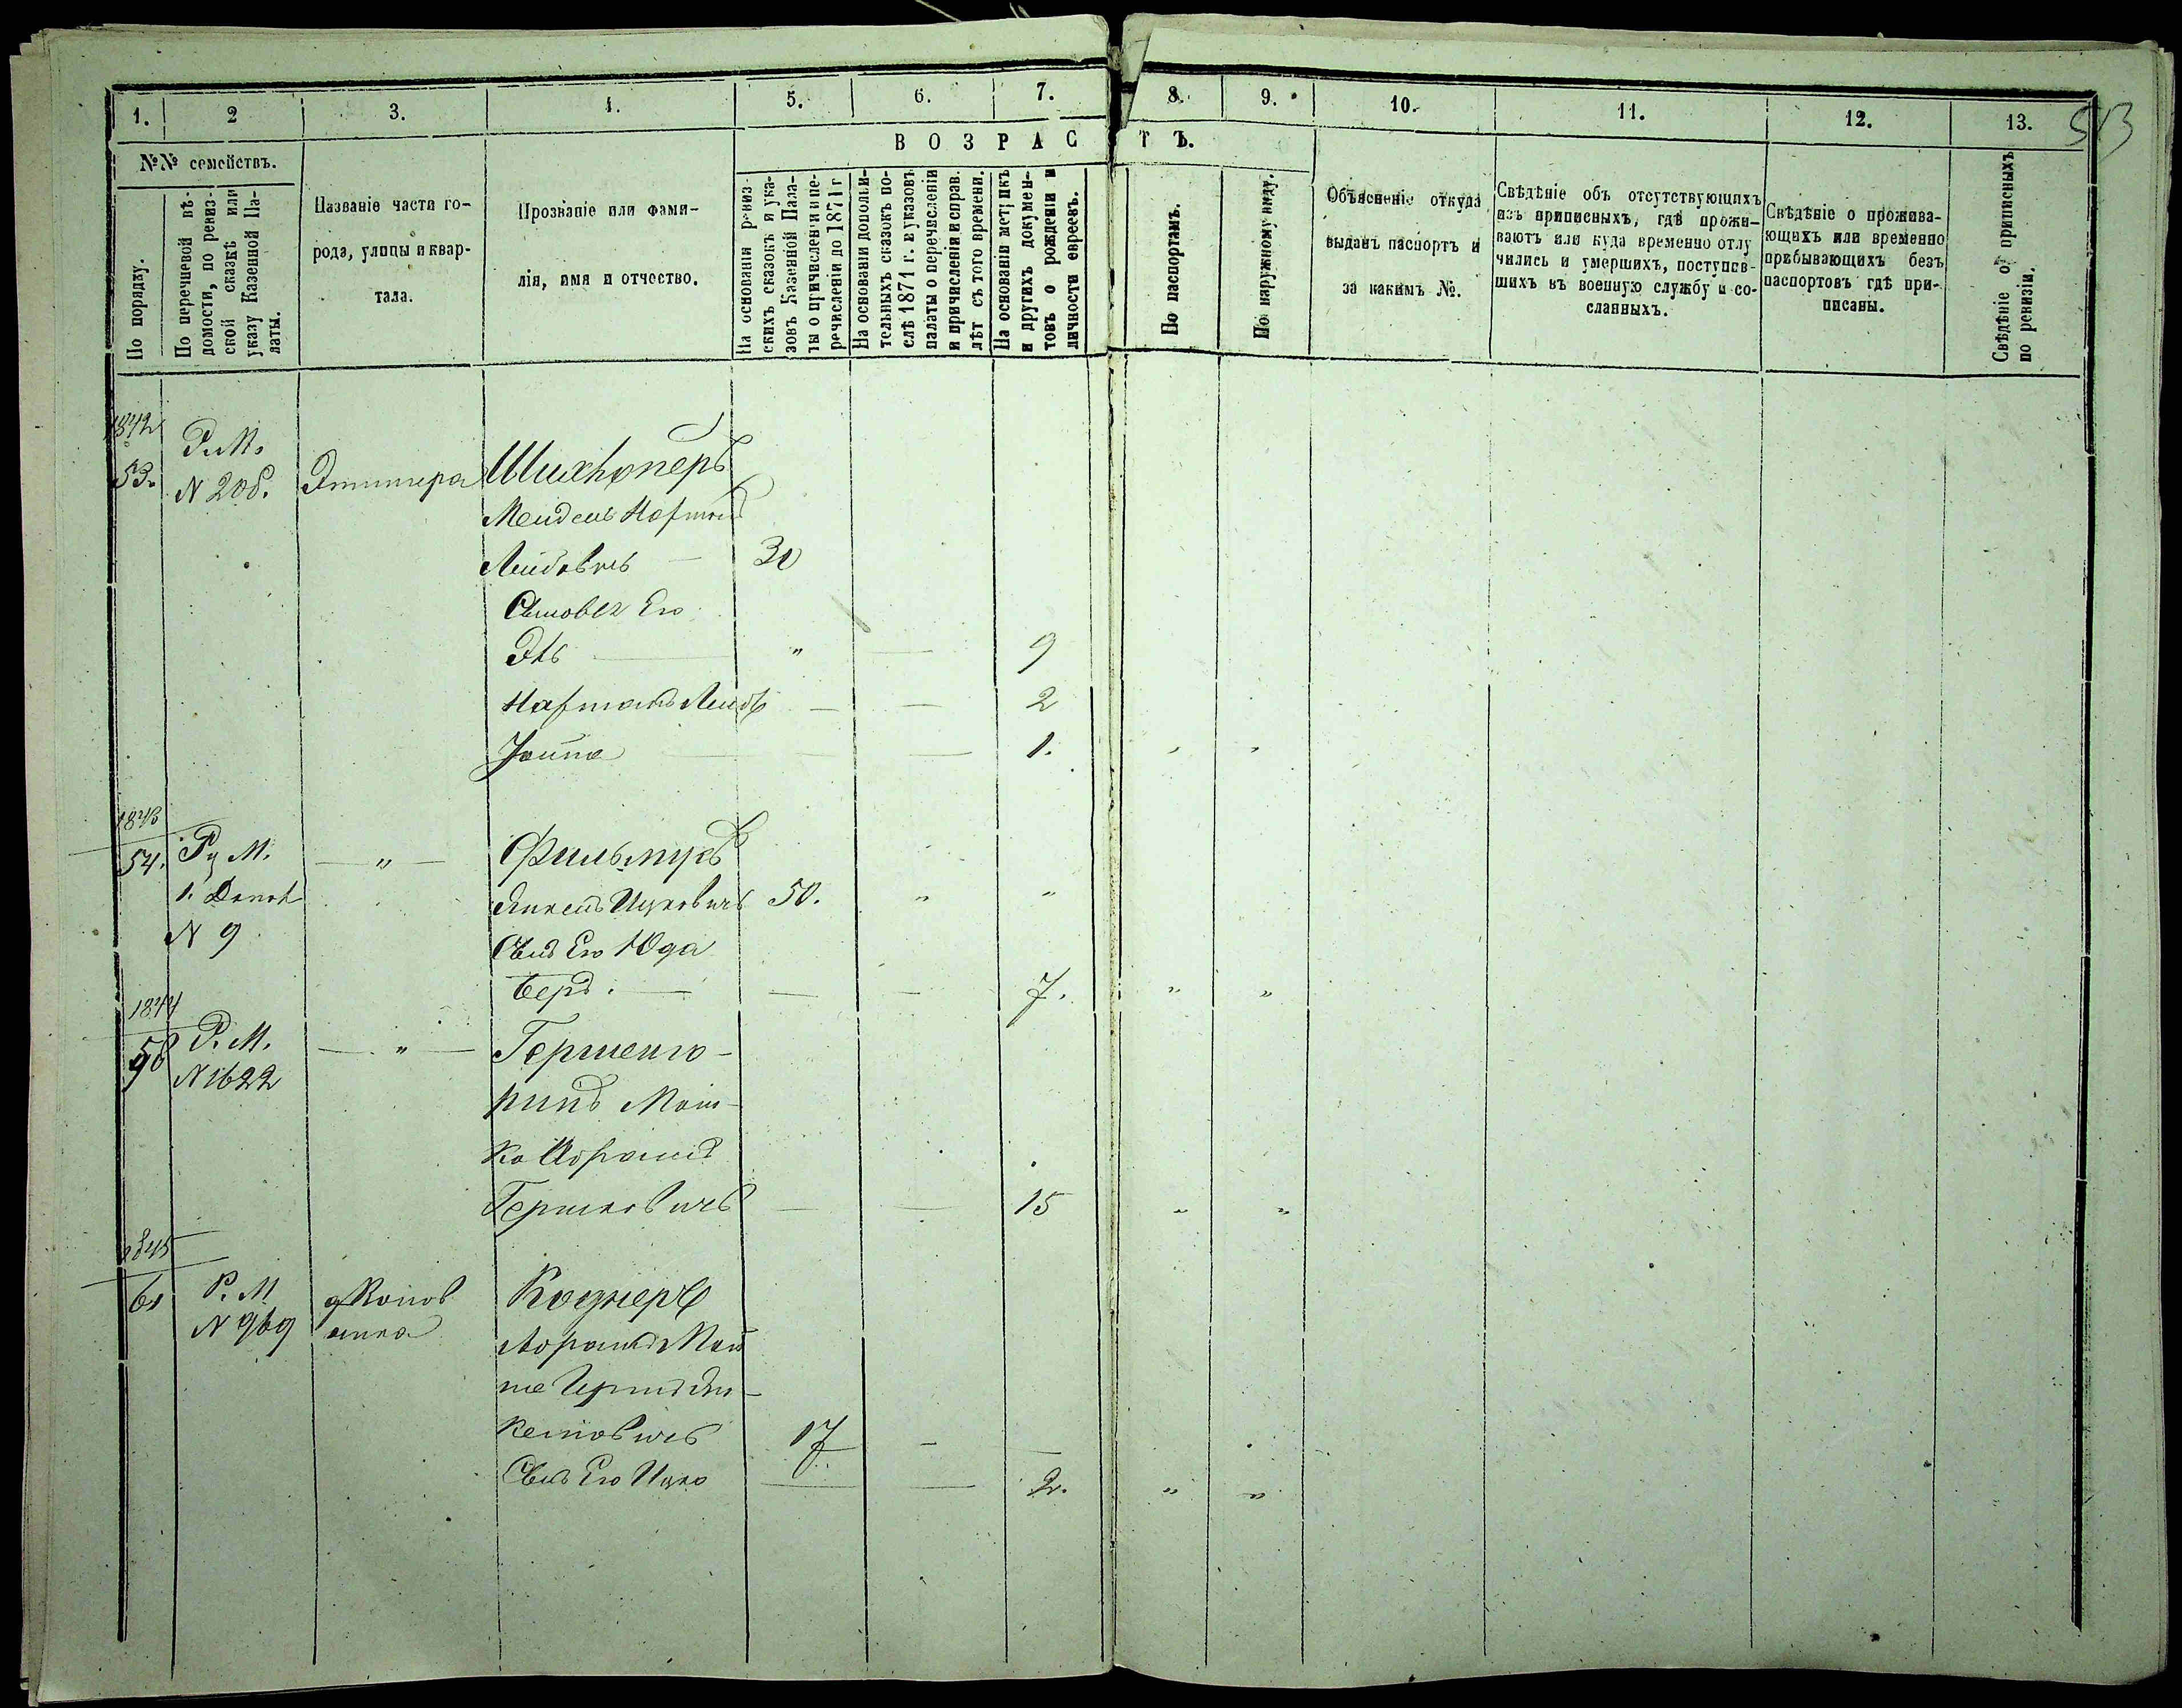 1. 2 3. 4. 5. 6. 7. 8. 9. 10. 11. 12. 13.
513
ВОЗРАСТЪ.
№№ семействъ.
По порядку.
По перечневой вѣ-
домости, по ревиз-
ской сказкѣ или
указу Казенной Па-
латы.
Названіе части го-
рода, улицы и квар-
тала.
Прозваніе или фами-
лія, имя и отчество.
На основаніи ревиз-
скихъ сказокъ и ука-
зовъ Казенной Пала-
ты о причисленіи и пе-
речислени до 1871 г
На основаніи дополни-
тельныхъ сказокъ по-
слѣ 1871 г. и указовъ
палаты о перечисленіи
и причисленіи и справ.
лѣт съ того времени.
На основаніи метрикъ
и другихъ докумен-
товъ о рожденіи и
личности евреевъ.
По паспортамъ.
По наружному виду.
Объясненіе откуда
выданъ паспортъ и
за какимъ №.
Свѣдѣніе объ отсутствующихъ
изъ приписныхъ, гдѣ прожи-
ваютъ или куда временно отлу
чились и умершихъ, поступив-
шихъ въ военную службу и со-
сланныхъ.
Свѣдѣніе о прожива-
ющихъ или временно
прибывающихъ безъ
паспортовъ гдѣ при-
писаны.
Свѣдѣніе о приписныхъ
по ревизіи.
1842
Р. М.
53. N 208.
Мендель Нафтоль
Лейбовичъ — 30
Сыновья Его
Эль — " — 9
Нафтоль Лейбъ — — 2
Іойна — — 1.
1843
54. Ру М. — " —
1. Допол
Янкель Ицковичъ 50. " "
N 9
Сынъ Его Юда
Беръ. — — — 7. " "
1844
Р. М. — " — Гершенго-
N 1622
ринъ Мош-
ко Абрамъ
Гершковичъ — — 15 " "
1845
Р. М
N 969
Абрамъ Мой
ше Герш Ян-
келіовичъ 17 — —
Сынъ Его Ицко — — 2. " "